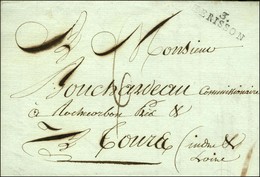 3
HERISSON
Monsieur
Bouchardeau Commissionnaire
à Rochecorbon Près &
Tours (indre &
Loire